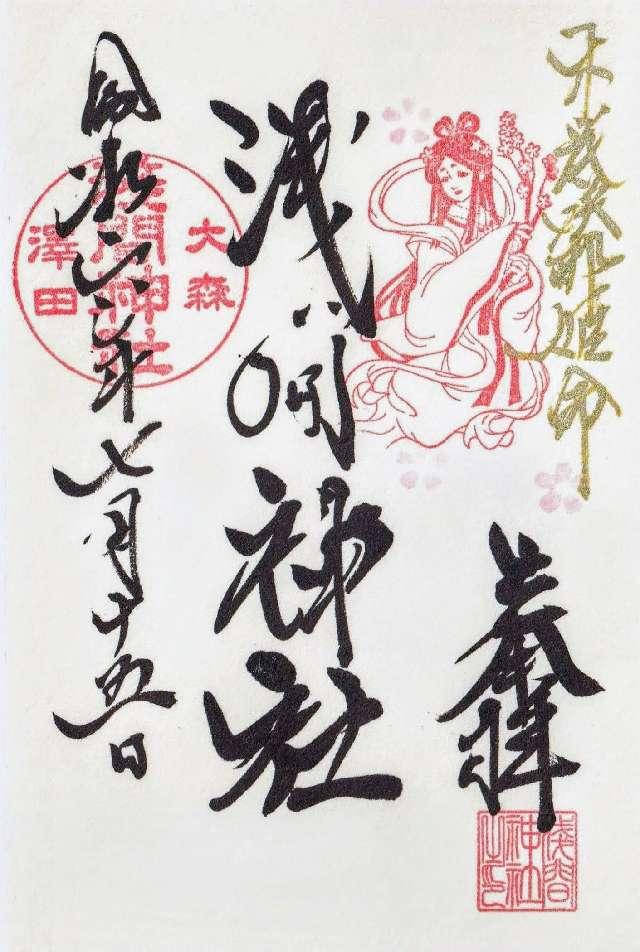 木花咲耶姫命
奉拝
浅間神社之印
浅間神社
大森
浅間神社
澤田
六年七月十五日